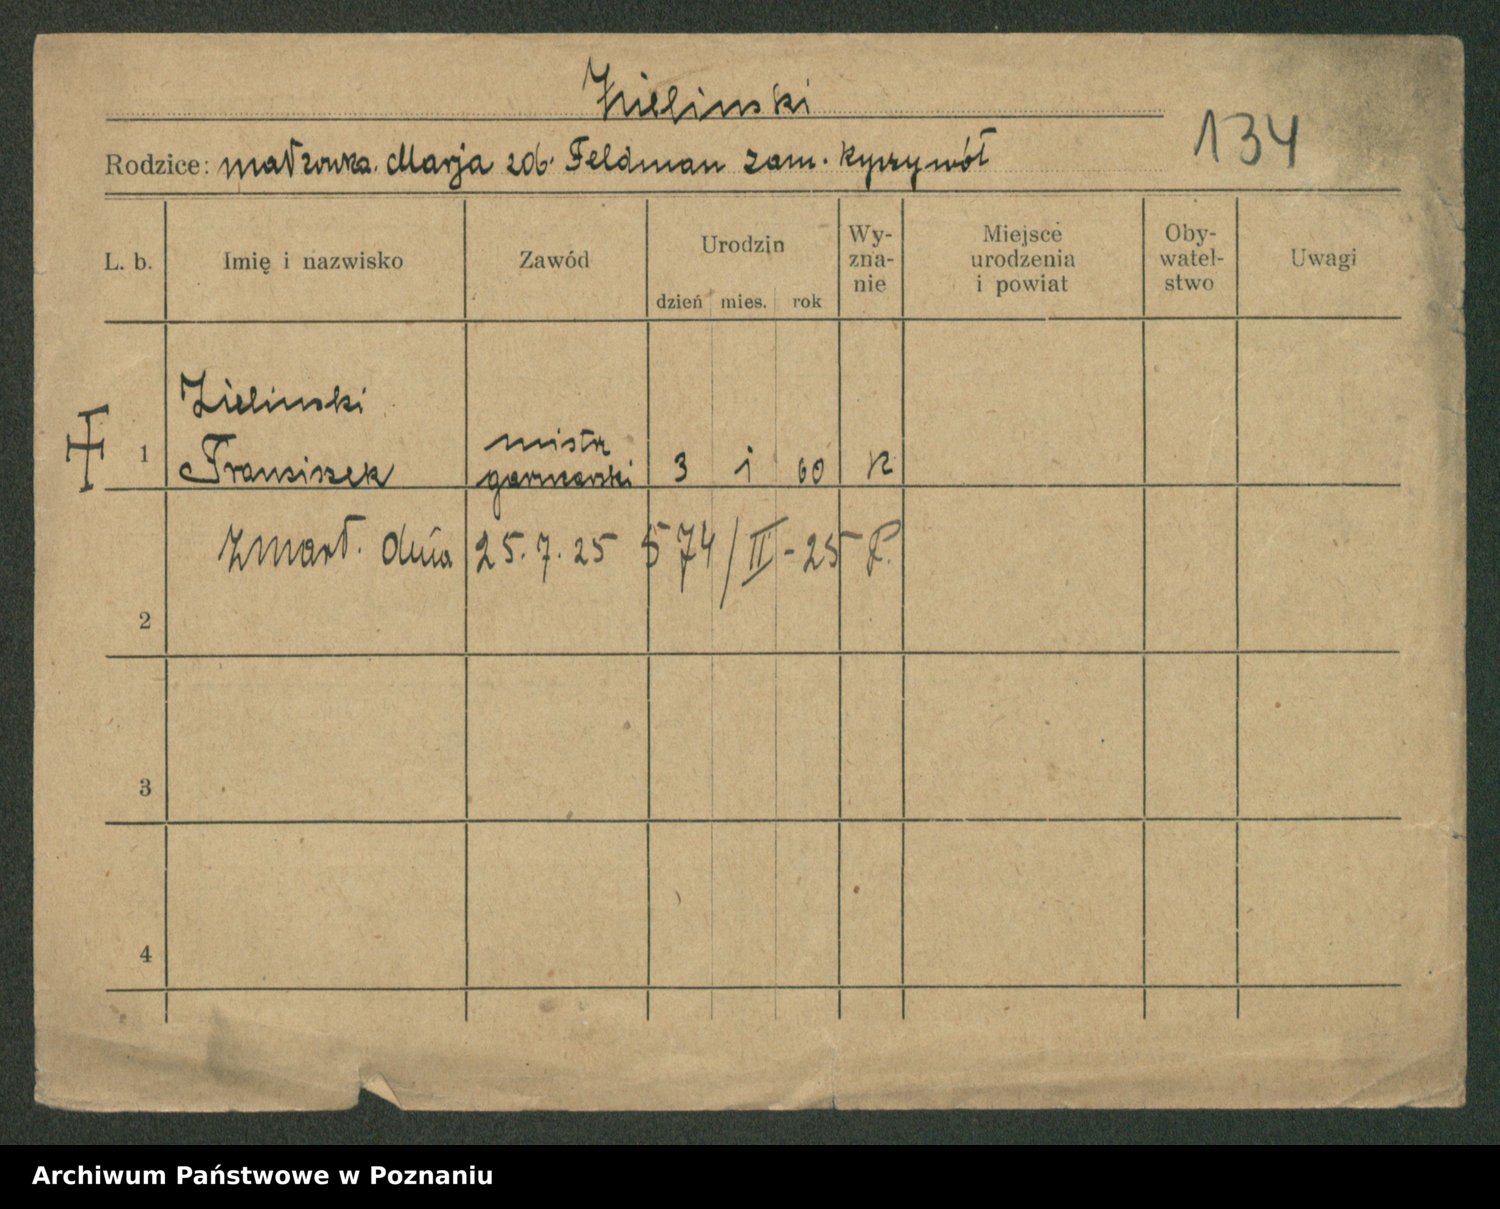 Zielinski
134
Rodzice: małżonka. Marja zob. Feldman zam.
L. b. Imię i nazwisko Zawód Urodzin dzień mies. rok Wy-zna-nie Miejsce urodzenia i powiat Oby-watel-stwo Uwagi
Zielinski
1 Fransiszek mistrz garncarski 3 i 60 k
zmarł. dnia 25.7.25 574/II-25
2
3
4
Archiwum Państwowe w Poznaniu